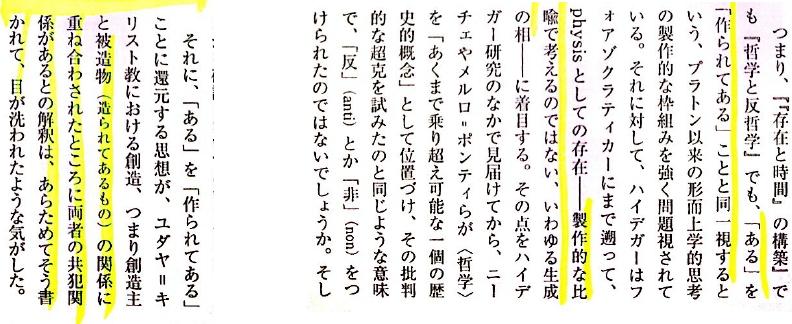 つまり、『『存在と時間』の構築』で
も『哲学と反哲学』でも、「ある」を
「作られてある」ことと同一視すると
いう、プラトン以来の形而上学的思考
の製作的な枠組みを強く問題視されて
いる。それに対して、ハイデガーはフ
ォアゾクラティカーにまで遡って、
physis としての存在――製作的な比
喩で考えるのではない、いわゆる生成
の相――に着目する。その点をハイデ
ガー研究のなかで見届けてから、ニー
チェやメルロ＝ポンティらが〈哲学〉
を「あくまで乗り超え可能な一個の歴
史的概念」として位置づけ、その批判
的な超克を試みたのと同じような意味
で、「反」(anti) とか「非」(non) をつ
けられたのではないでしょうか。そし
それに、「ある」を「作られてある」
ことに還元する思想が、ユダヤ＝キ
リスト教における創造、つまり創造主
と被造物（造られてあるもの）の関係に
重ね合わされたところに両者の共犯関
係があるとの解釈は、あらためてそう書
かれて、目が洗われたような気がした。